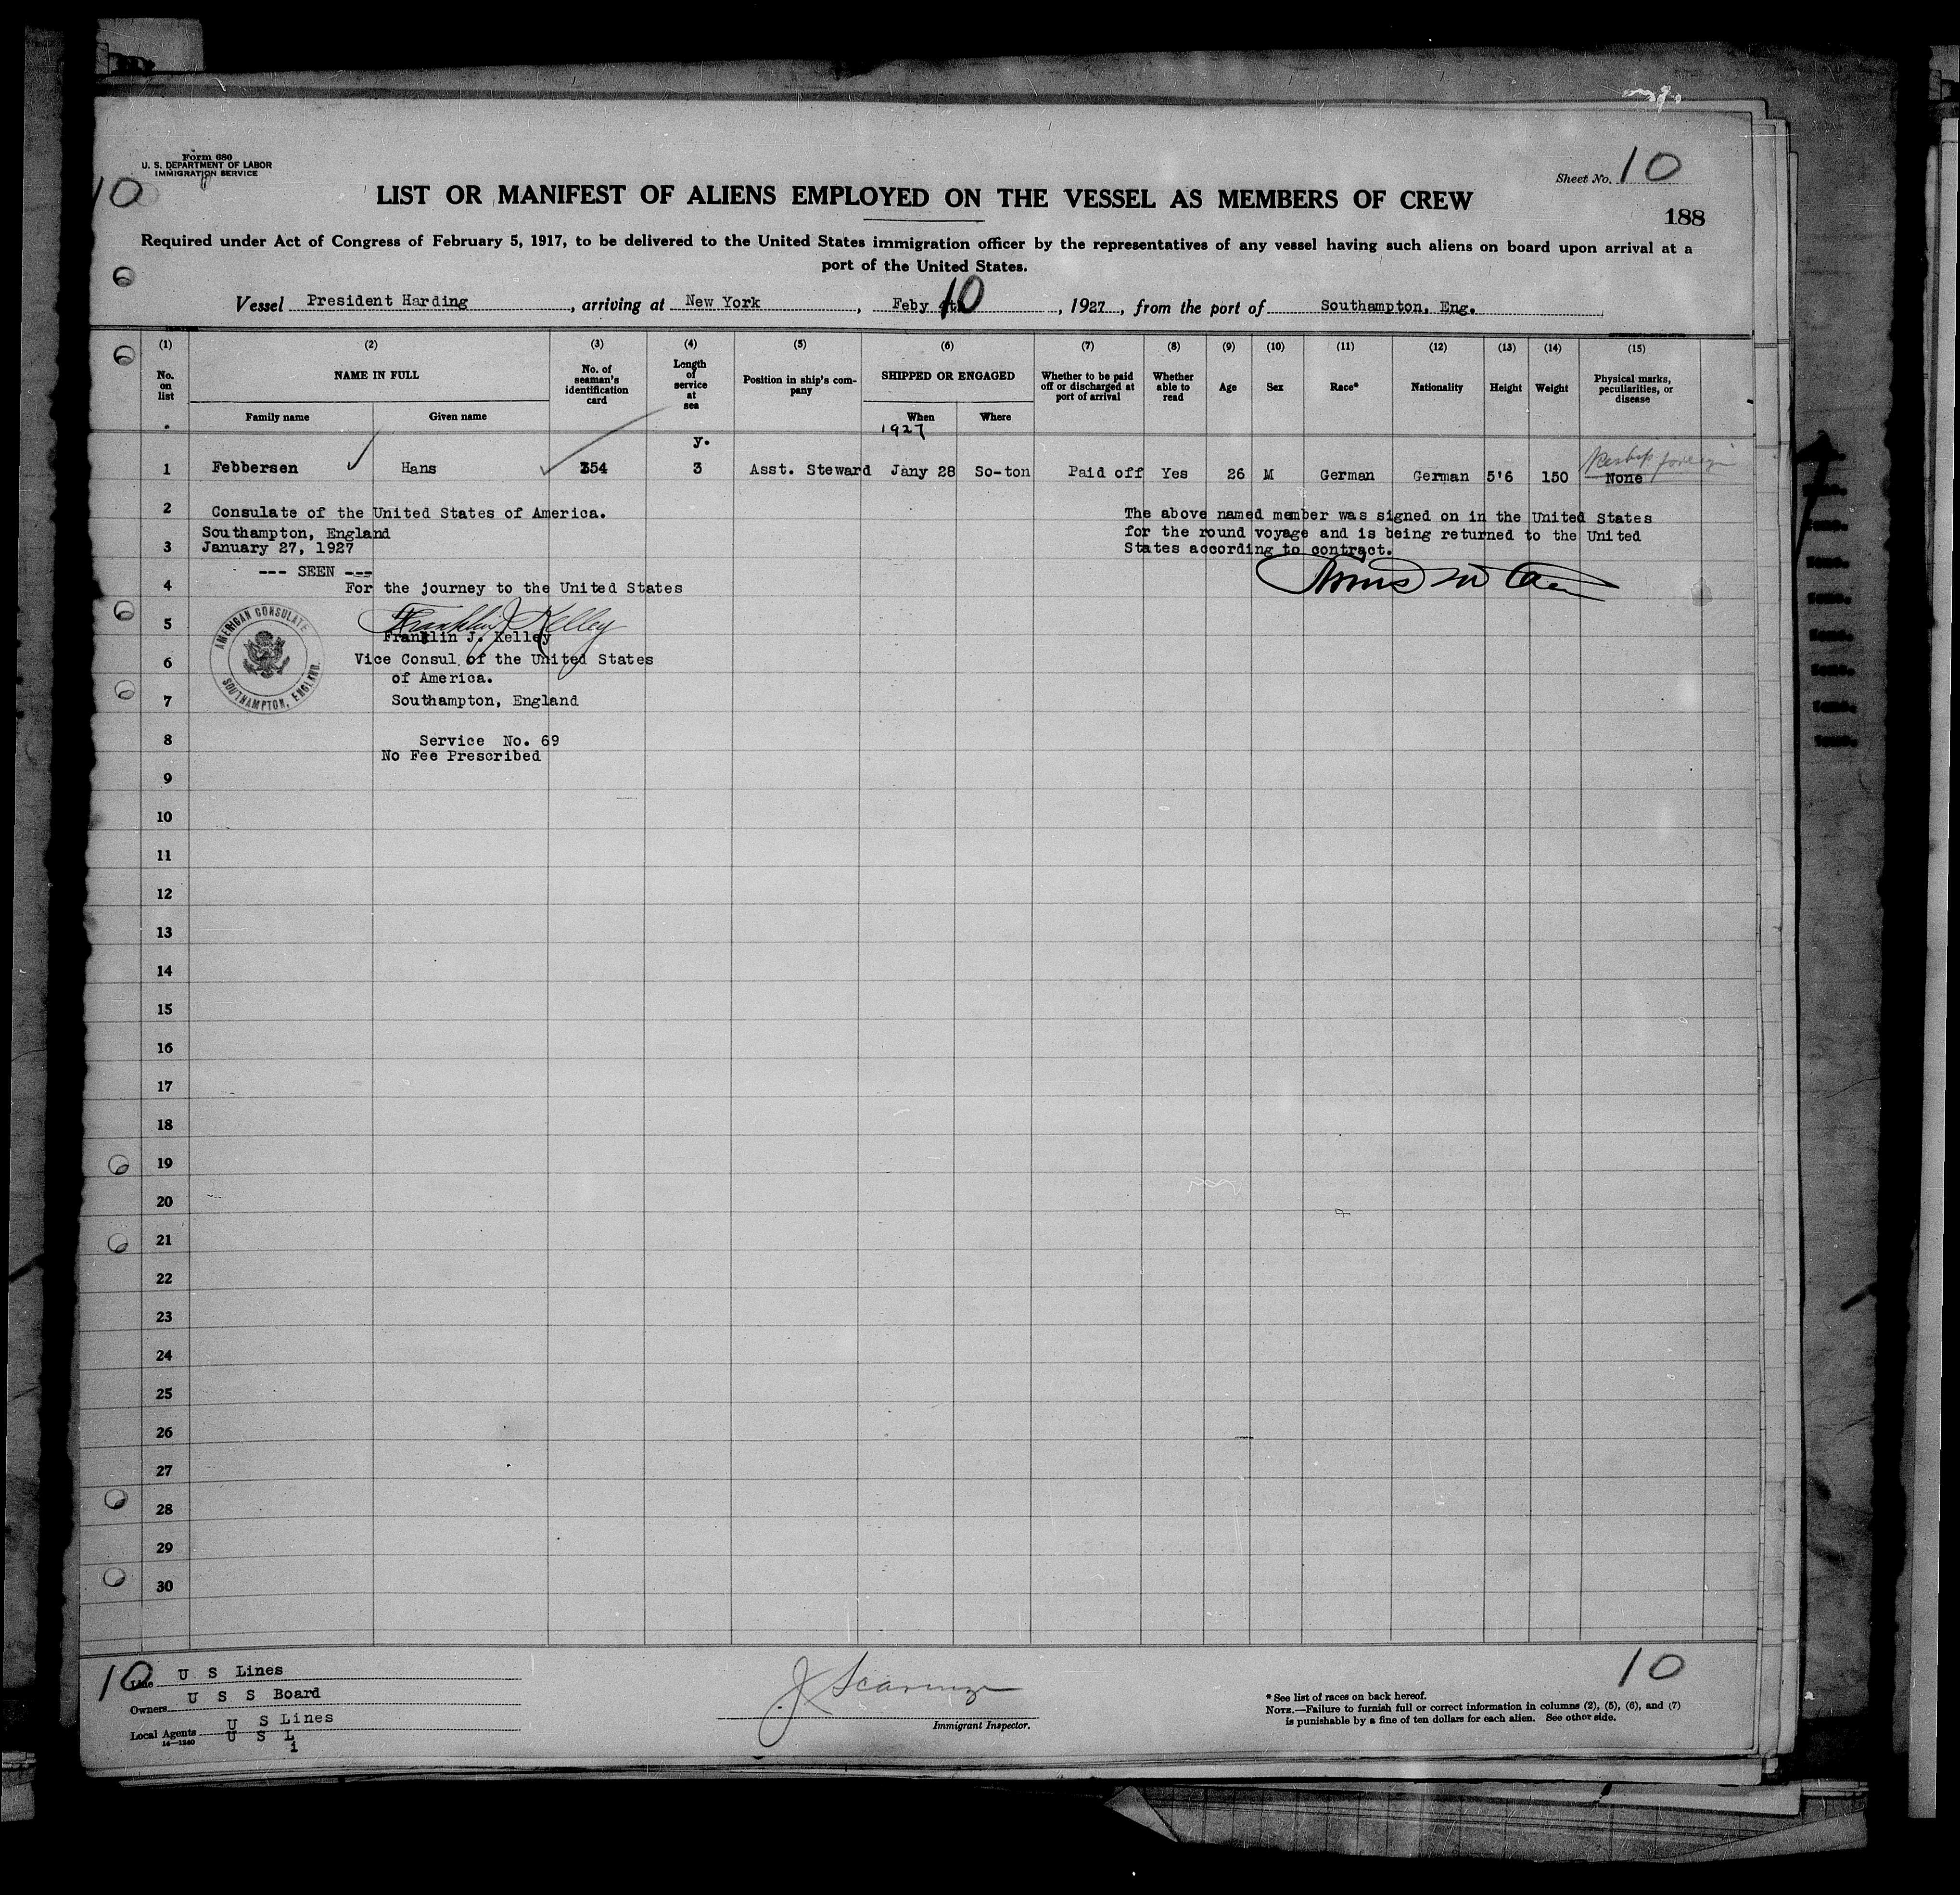 Form 680
U. S. DEPARTMENT OF LABOR
IMMIGRATION SERVICE
10
Sheet No. 10
LIST OR MANIFEST OF ALIENS EMPLOYED ON THE VESSEL AS MEMBERS OF CREW
188
Required under Act of Congress of February 5, 1917, to be delivered to the United States immigration officer by the representatives of any vessel having such aliens on board upon arrival at a
port of the United States.
Vessel President Harding, arriving at New York, Feby 10, 1927, from the port of Southampton, Eng.
(1) (2) (3) (4) (5) (6) (7) (8) (9) (10) (11) (12) (13) (14) (15)
No. on list
NAME IN FULL
Family name Given name
No. of seaman's identification card
Length of service at sea
Position in ship's company
SHIPPED OR ENGAGED
When Where
Whether to be paid off or discharged at port of arrival
Whether able to read
Age
Sex
Race*
Nationality
Height
Weight
Physical marks, peculiarities, or disease
1927
y.
1 Febbersen Hans 354 3 Asst. Steward Jany 28 So-ton Paid off Yes 26 M German German 5'6 150 None
foreign
2 Consulate of the United States of America.
Southampton, England
3 January 27, 1927
--- SEEN ---
4 For the journey to the United States
The above named member was signed on in the United States
for the round voyage and is being returned to the United
States according to contract.
AMERICAN CONSULATE
SOUTHAMPTON, ENGLAND.
5 Franklin J. Kelley
Franklin J. Kelley
6 Vice Consul of the United States
of America.
7 Southampton, England
8 Service No. 69
No Fee Prescribed
9
10
11
12
13
14
15
16
17
18
19
20
21
22
23
24
25
26
27
28
29
30
10
Line U S Lines
Owners U S S Board
Local Agents U S Lines
U S L
i
16—1240
Immigrant Inspector.
10
* See list of races on back hereof.
NOTE.—Failure to furnish full or correct information in columns (2), (5), (6), and (7)
is punishable by a fine of ten dollars for each alien. See other side.